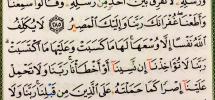 وَرُسُلِهِ لَا نُفَرِّقُ بَيْنَ أَحَدٍ مِن رُسُلِهِ وَقَالُوا سَمِعْنَا
وَأَطَعْنَا غُفْرَانَكَ رَبَّنَا وَإِلَيْكَ الْمَصِيرُ ﴿٢٨٥﴾ لَا يُكَلِّفُ
اللَّهُ نَفْسًا إِلَّا وُسْعَهَا لَهَا مَا كَسَبَتْ وَعَلَيْهَا مَا اكْتَسَبَتْ
رَبَّنَا لَا تُؤَاخِذْنَا إِن نَّسِينَا أَوْ أَخْطَأْنَا رَبَّنَا وَلَا تَحْمِلْ
عَلَيْنَا إِصْرًا كَمَا حَمَلْتَهُ عَلَى الَّذِينَ مِن قَبْلِنَا رَبَّنَا وَلَا